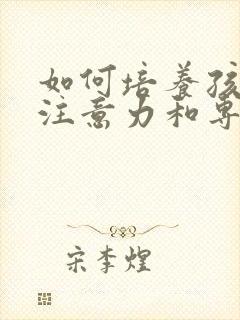 如何培养孩
注意力和专
宋李煌